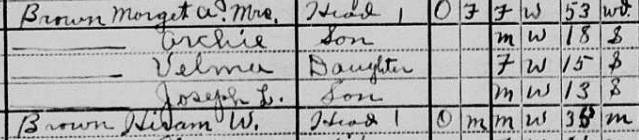 Brown Morget A. Mrs. Head 1 O F F W 53 wd.
—— Archie Son m W 18 S
—— Velma Daughter F W 15 S
—— Joseph L. Son m W 13 S
Brown Hiram W. Head 1 O m m W m